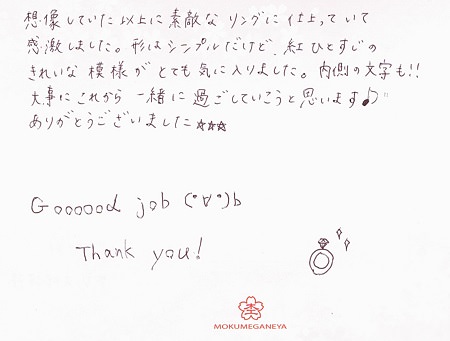 想像していた以上に素敵なリングに仕上っていて
感激しました。形はシンプルだけど、紅ひとすじの
きれいな模様がとても気に入りました。内側の文字も!!
大事にこれから一緒に過ごしていこうと思います♪"
ありがとうございました☆☆☆
Goooood job (°∀°)b
Thank you!
MOKUMEGANEYA